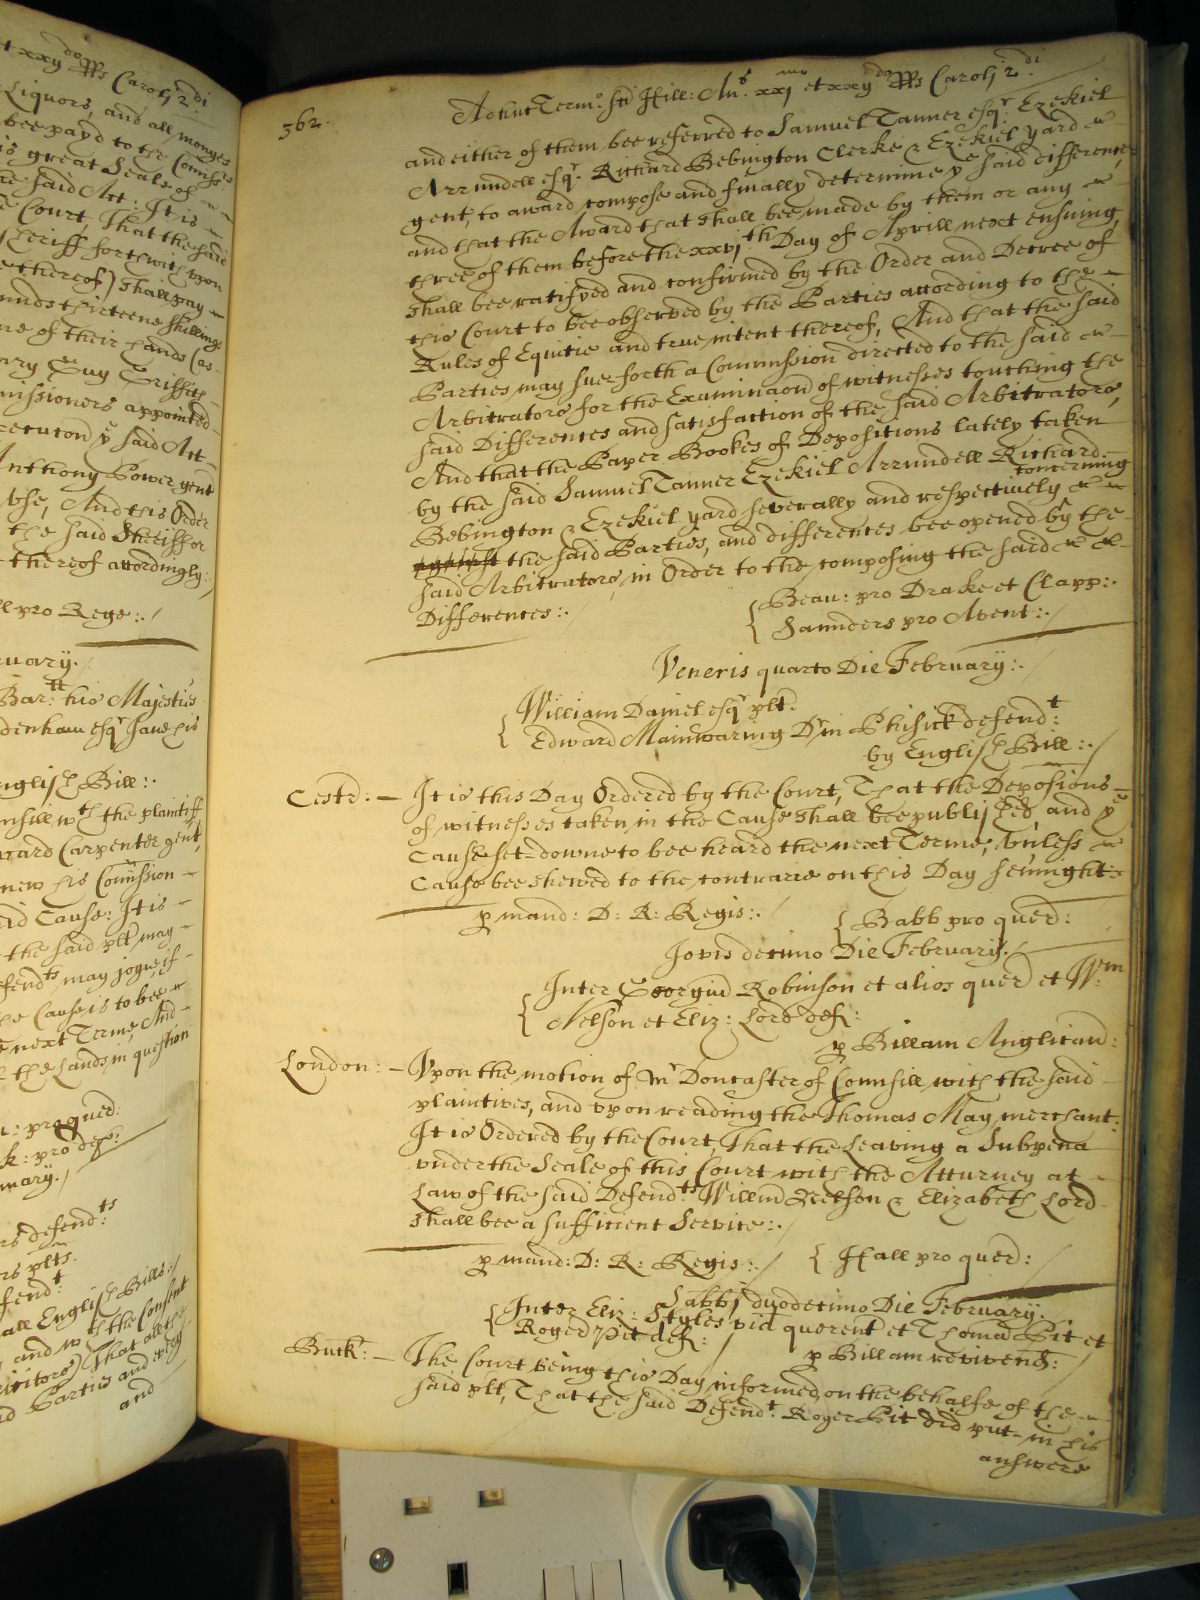 et xxij do RRs Caroli 2 di
Liquors, and all monyes
bee payd to the Comissrs
is great Seale of
he said Act: It is
Court, That the said
Sheriff forthwith upon
thereof) shall pay
unds thirteene shillings
ne of their hands (as
nry Guy Griffith
missioners appointed
cecucon ye said Act
Anthony Bower gent
And this Order
the said Sheriffe
thereof accordingly:
ll pro Rege:
ruary.
Bar:tt his Majesties
denham esqr
nglish Bill:
nsill wth the plaintiff
ward Carpenter gent
new his Comission
id Cause: It is
the said plt may
fendts may joyne if
he Cause is to bee
next Terme, And
the Lands in question
: pro quer:
k: pro def:
ruary.
rs defend:ts
rs plts.
fend:t
all English Bills:
and wth the Consent
icitors) That all the
id Parties and
and
362.
Adhuc Termo: Sci Hill: Ano: xxjmo et xxijdo RRs Caroli 2di
and either of them bee referred to Samuel Tanner esqr: Ezekiel
Arrundell esqr. Richard Bebington Clerke & Ezekiel yard
gent, to award compose and finally determine ye said differences
and that the Award that shall bee made by them or any
three of them before the xxvjth Day of Aprill next ensuing
shall bee ratifyed and confirmed by the Order and Decree of
this Court to bee observed by the Parties according to the
Rules of Equitie and true intent thereof, And that the said
Parties may sue forth a Commission directed to the said
Arbitrators for the Examinacon of witnesses touching the
said Differences and satisfaction of the said Arbitrators,
And that the Paper Bookes of Depositions lately taken
by the said Samuel Tanner Ezekiel Arrundell Richard
Bebington & Ezekiel yard severally and respectively concerning
against the said Parties, and differences bee opened by the
said Arbitrators, in Order to the composing the said
Differences:.
Beau: pro Drake et Clapp:.
Saunders pro Avent:.
Veneris quarto Die February:.
William Daniel esqr plt.
Edward Mainwaring Dr in Phisick defend:t
by English Bill:.
Cestr: It is this Day Ordered by the Court, That the Deposions
of witnesses taken in the Cause shall bee published, and ye
Cause set-downe to bee heard the next Terme, vnless
Cause bee shewed to the contrarie on this Day sennight:
p mand: D: R: Regis:. Babb pro quer:
Jovis decimo Die February.
Inter Georgiu Robinson et alios quer et Wm:
Nelson et Eliz: Lord def:
p Billam Anglican:
London: Vpon the motion of Mr Doncaster of Counsill with the said
plaintives, and vpon reading the Thomas May merchant:
It is Ordered by the Court, That the Leaving a Subpena
vnder the Seale of this Court with the Atturney at
Law of the said Defendts Willm Nelson & Elizabeth Lord
shall bee a sufficient Service:.
p mand: D: R: Regis:. Hall pro quer:
Sabbi duodecimo Die February.
Inter Eliz: Styles vid querent et Thoma Pit et
Roger Pit def:
p Billam revivend:
Buck: The Court being this Day informed, on the behalfe of the
said plt, That the said Defend:t Roger Pit did put-in his
answere